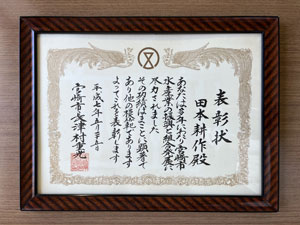 表彰状
田本耕作殿
あなたは多年にわたり宮崎市
水産業の振興と組合発展に
尽力されました
その功績はまことに顕著で
あり他の模範であります
よってこれを表彰します
平成七年五月十五日
宮崎市長津村重光